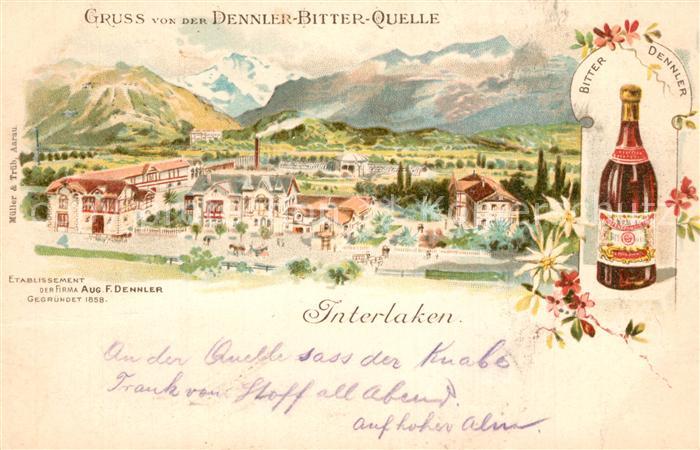 GRUSS VON DER DENNLER-BITTER-QUELLE
BITTER DENNLER
Müller & Trüb, Aarau.
ETABLISSEMENT
DER FIRMA AUG. F. DENNLER
GEGRÜNDET 1858.
Interlaken.
An der Quelle sass der Knabe
Trank von Stoff all Abend.
auf hoher Alm.